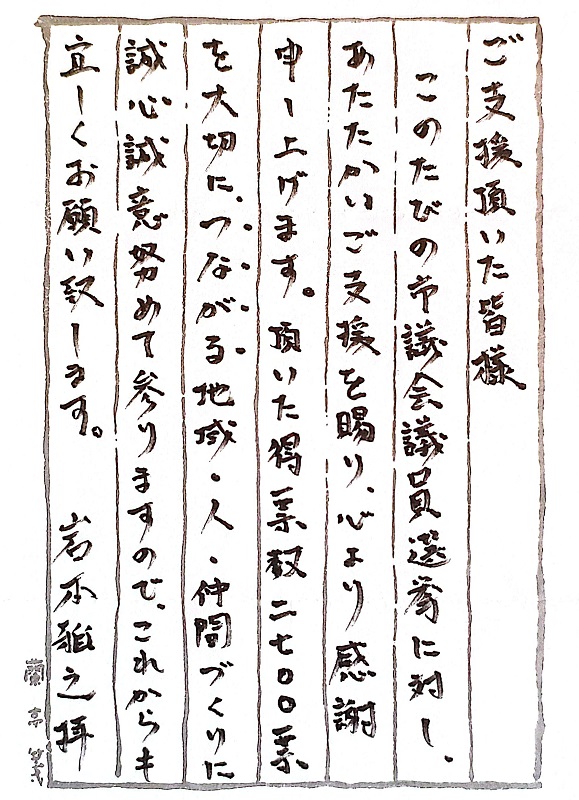 ご支援頂いた皆様
このたびの市議会議員選挙に対し、
あたたかいご支援を賜り、心より感謝
申し上げます。頂いた得票数二七〇〇票
を大切に、つながる地域・人・仲間づくりに
誠心誠意努めて参りますので、これからも
宜しくお願い致します。 岩本雅之拝
蘭亭箋